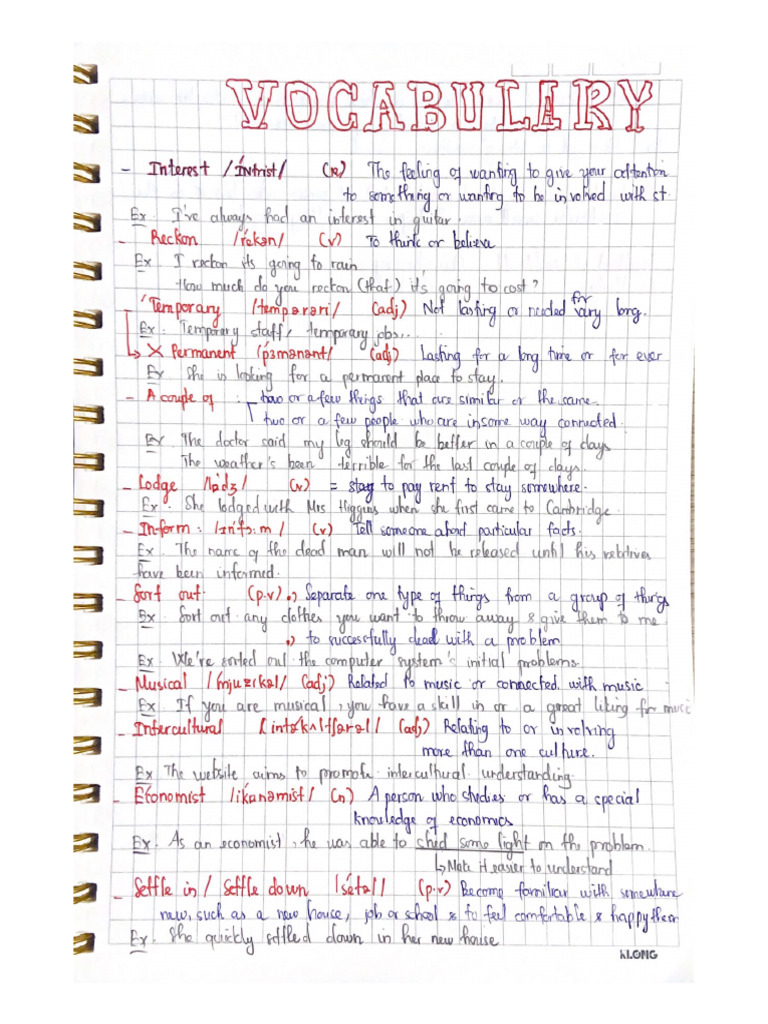 VOCABULARY
- Interest /íntrist/ (n) The feeling of wanting to give your attention
to something or wanting to be involved with st.
Ex. I've always had an interest in guitar.
- Reckon /rékən/ (v) To think or believe
Ex I reckon its going to rain
How much do you reckon (that) it's going to cost?
Temporary /tempərəri/ (adj) Not lasting or needed for vary long.
Ex: Temporary staff, temporary jobs...
↳ X Permanent /pɜ́mənənt/ (adj) Lasting for a long time or for ever
Ex She is looking for a permanent place to stay.
- A couple of : two or a few things that are similar or the same.
two or a few people who are in some way connected.
Ex The doctor said my leg should be better in a couple of days
The weather's been terrible for the last couple of days.
- Lodge /lɒdʒ/ (v) = stay to pay rent to stay somewhere.
Ex: She lodged with Mrs Higgins when she first came to Cambridge.
- Inform: /ɪnfɔ:m/ (v) Tell someone about particular facts.
Ex: The name of the dead man will not be released until his relatives
have been informed.
- Sort out (p.v) •) Separate one type of things from a group of things
Ex: Sort out any clothes you want to throw away & give them to me
•) to successfully dead with a problem
Ex: We're sorted out the computer system's initial problems.
- Musical /mjuzikəl/ (adj) Related to music or connected with music
Ex: If you are musical, you have a skill in or a great liking for music
- Intercultural /intəkʌltʃərəl/ (adj) Relating to or involving
more than one culture.
Ex The website aims to promote intercultural understanding.
- Economist /ikɑnəmist/ (n) A person who studies or has a special
knowledge of economics
Ex: As an economist, he was able to shed some light on the problem.
↳ Make it easier to understand
- Settle in / settle down /sétəl/ (p.v) Become familiar with somewhere
new, such as a new house, job or school & to feel comfortable & happy there
Ex: She quickly settled down in her new house
KLONG